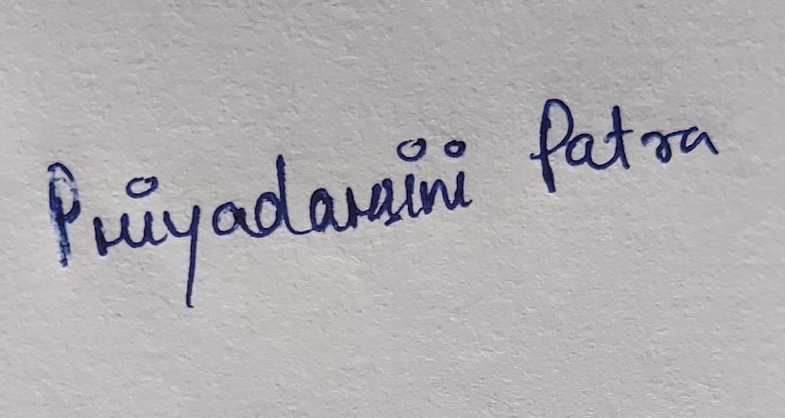 Priyadarsini Patra